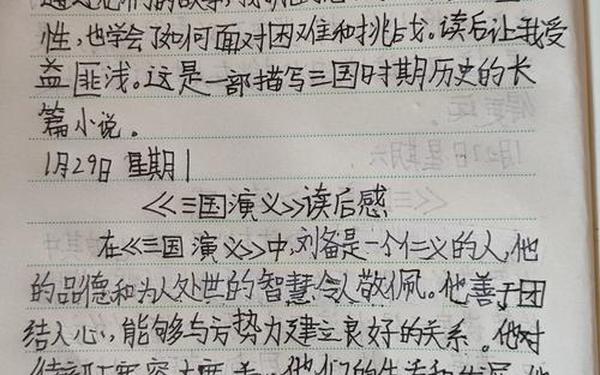 性,也学会了如何面对困难和挑战。读后让我受
益匪浅。这是一部描写三国时期历史的长
篇小说。
1月29日 星期1
《三国演义》读后感
在《三国演义》中,刘备是一个仁义的人,他
的品德和为人处世的智慧,令人敬佩。他善于团
结人心,能够与方势力建立良好的关系。他对